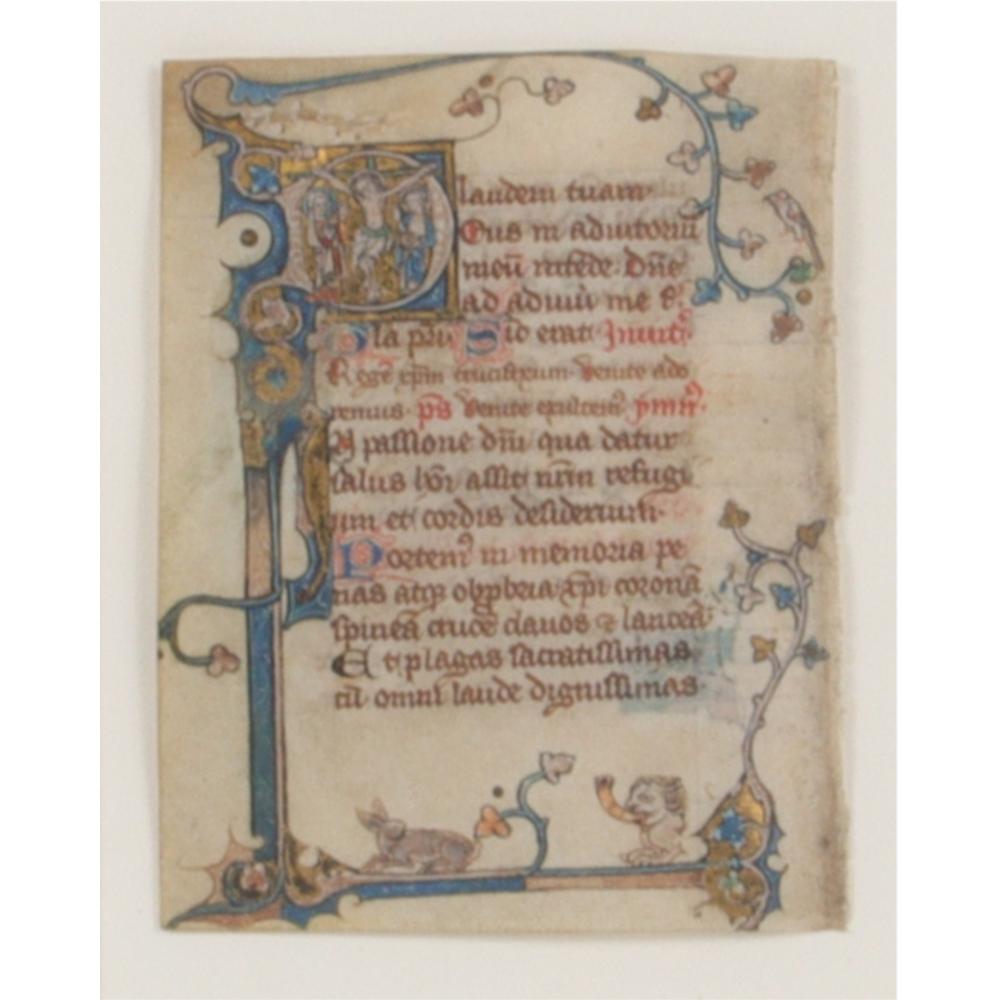 laudem tuam
Eus in adiutoriū
meū intēde Dn̄e
ad adiuuū me f
la pr̄i Sic̄ erat Inuit
Regē xp̄m crucifixum Venite ado
remus ps̄ Venite exultem ymn
N passione dn̄i qua datur
salus ho͂i assit nr̄m refugi
um et cordis desiderium
Portem in memoria pe
nas atq; obp̄bria xp̄i coronā
spineā crucē clauos & lanceā
Et plagas sacratissimas
cū omni laude dignissimas